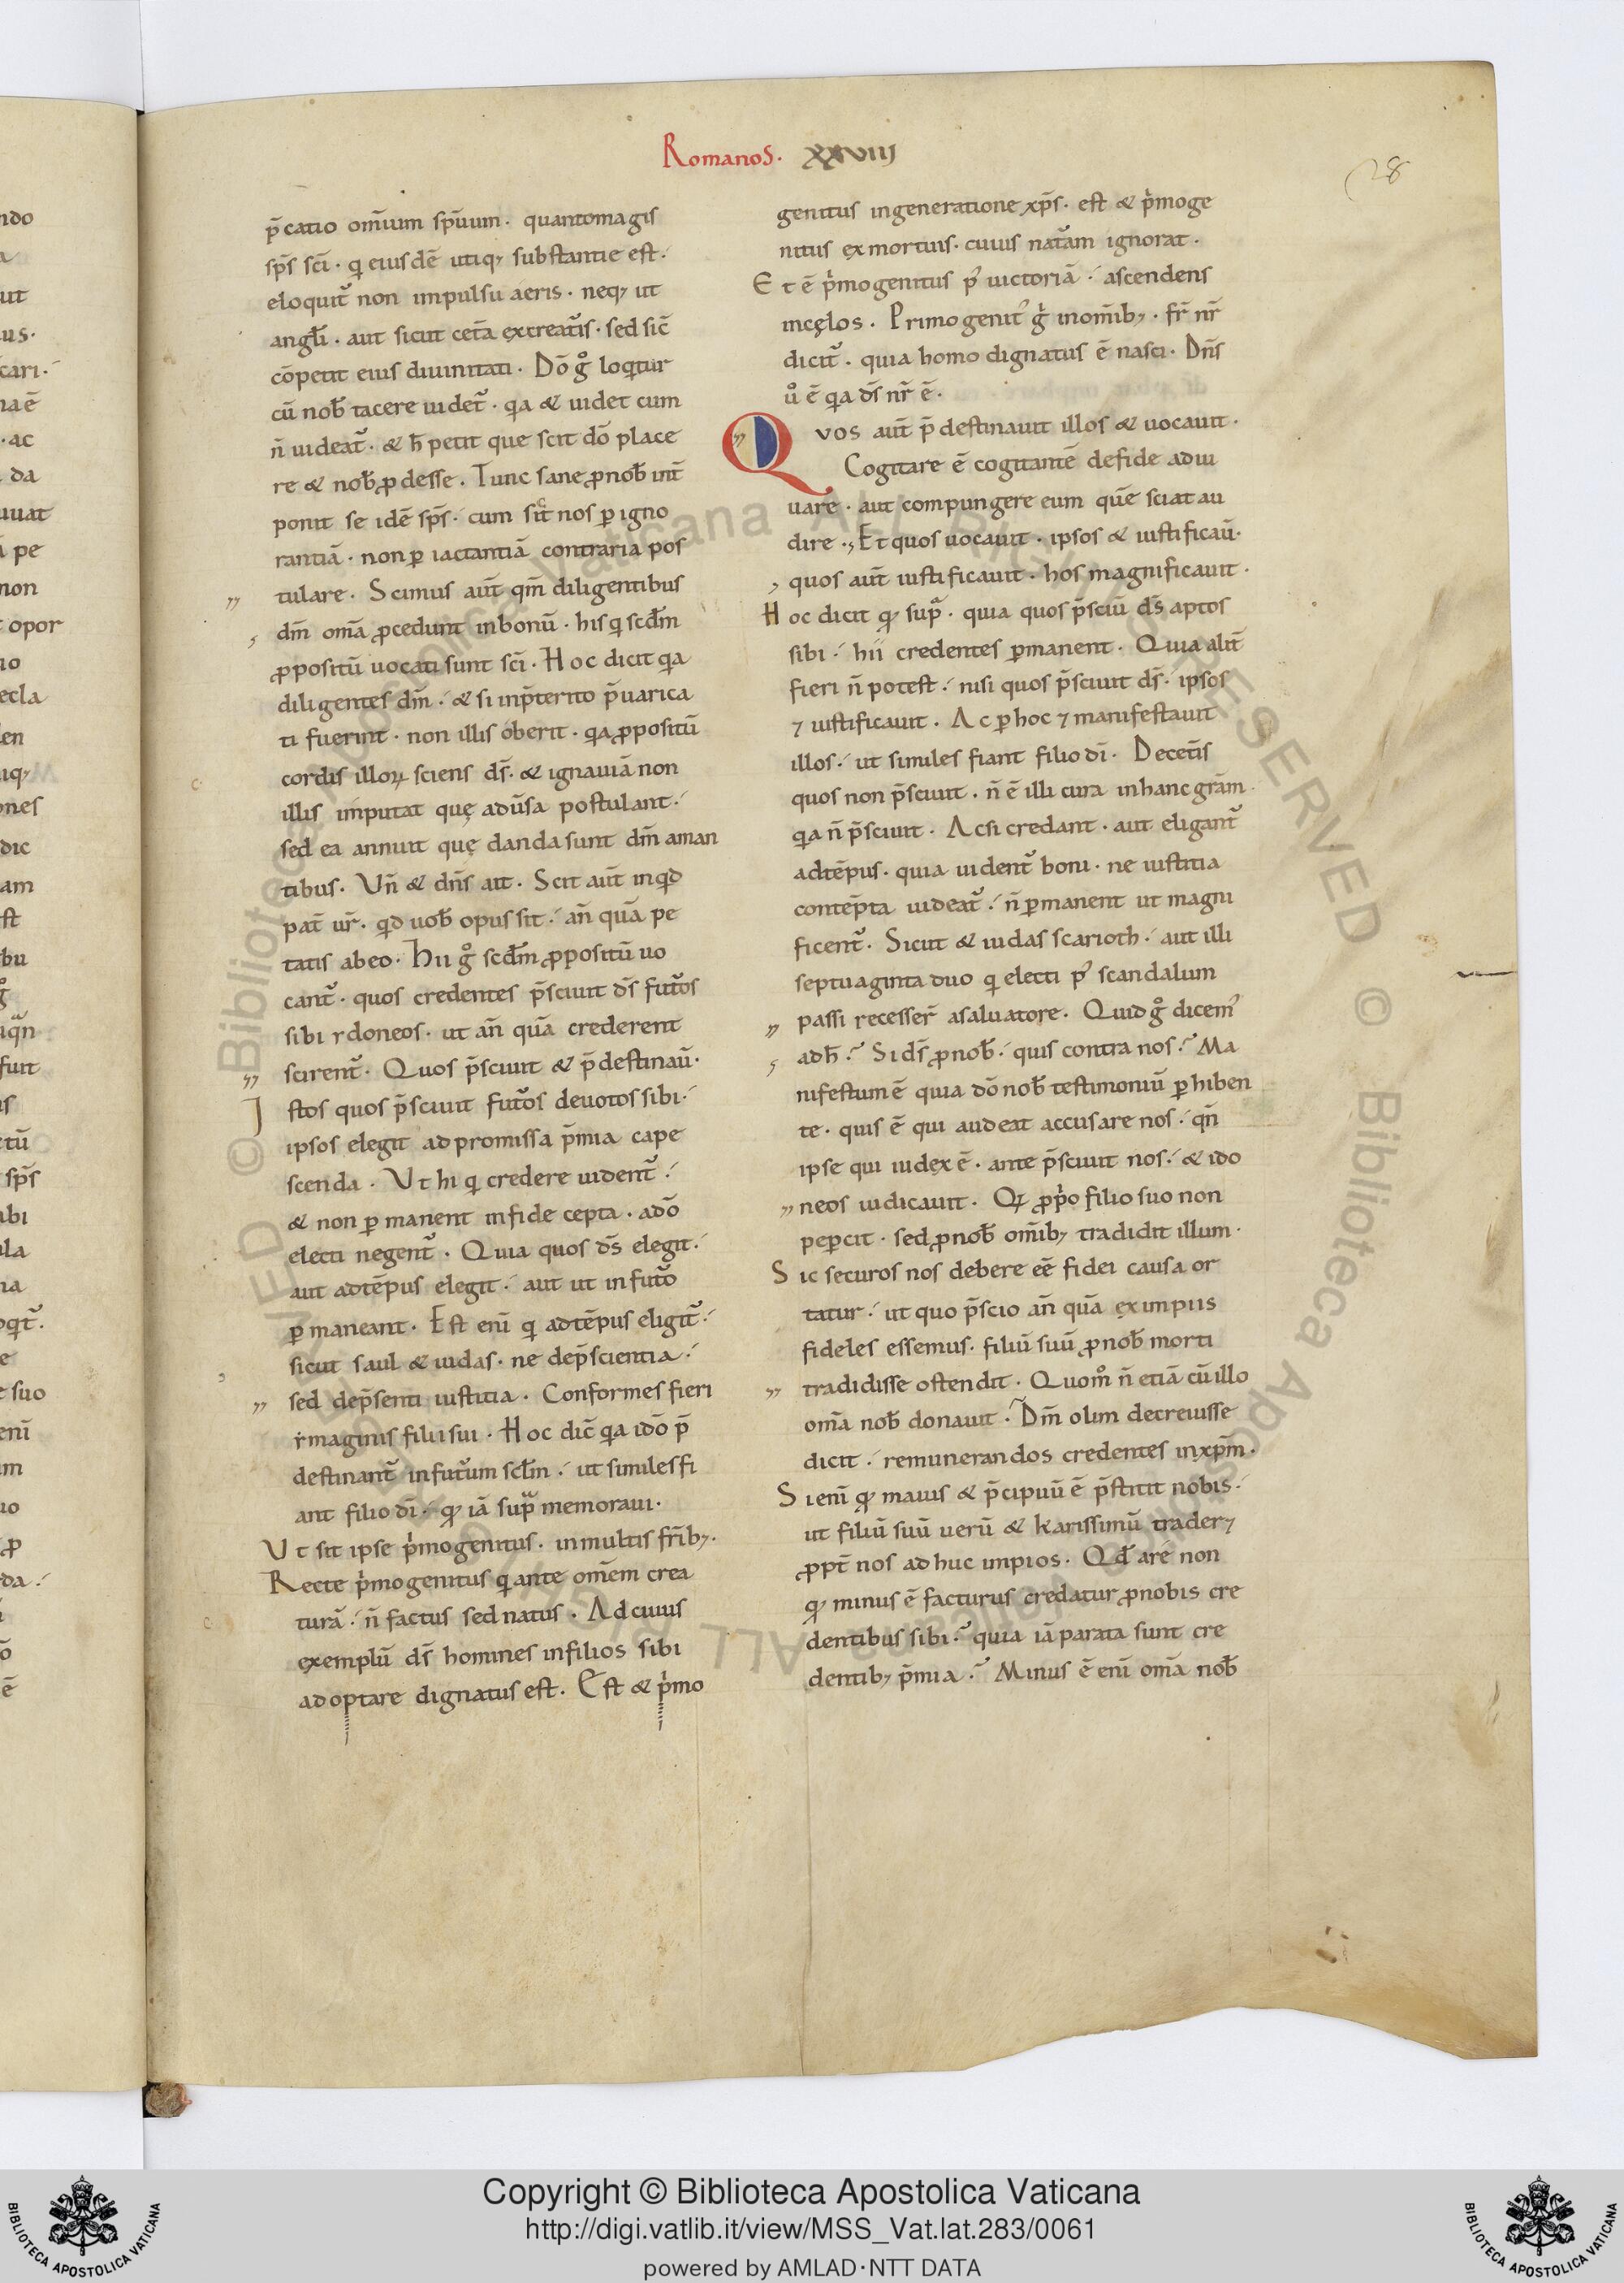 Romanos. XXVIIII
28
p̄catio om̄ium sp̄uum. quantomagis
sp̄s sc̄i. q eiusdē utiq; substantie est.
eloquit̃ non impulsu aeris. neq; ut
angl̄i. aut sicut cet̄a excreat̃is. sed sic̄
cōpetit eius diuinitati. Dō g̊ loqtur
cū nob̄ tacere uidet̃. qa & uidet cum
n̄ uideat̃. & h̄ petit que scit dō place
re & nob̄ ꝓdesse. Tunc sane ꝓnob̄ int̄
ponit se idē sp̄s. cum sit nos ꝑ igno
rantiā. non ꝑ iactantiā contraria pos
tulare. Scimus aut̄ qm̄ diligentibus
dm̄ om̄a ꝓcedunt inbonū. his q scd̄m
ꝓpositū uocati sunt sc̄i. Hoc dicit qa
diligentes dm̄. & si inp̄terito p̄uarica
ti fuerint. non illis oberit. qa ꝓpositū
cordis illoꝝ sciens ds̄. & ignauiā non
illis imputat quę adūsa postulant.
sed ea annuit quę danda sunt dm̄ aman
tibus. Vn̄ & dn̄s ait. Scit aut̄ inqd
pat̄ ur̄. qd uob̄ opus sit. an̄ quā pe
tatis abeo. Hii g̊ scd̄m ꝓpositū uo
cant̃. quos credentes p̄sciuit ds̄ fut̃os
sibi ydoneos. ut an̄ quā crederent
scirent̃. Quos p̄sciuit & p̄destinaū.
Istos quos p̄sciuit fut̃os deuotos sibi.
ipsos elegit ad promissa p̄mia cape
scenda. Ut hi q credere uident̃.
& non ꝑmanent infide cepta. adō
electi negent̃. Quia quos ds̄ elegit.
aut adtēpus elegit. aut ut in fut̃o
ꝑmaneant. Est enī q adtēpus eligit̃.
sicut saul & iudas. ne dep̄scientia.
sed dep̄senti iustitia. Conformes fieri
ymaginis filii sui. Hoc dic̄ qa idō p̄
destinant̃ infut̃um scl̄m. ut similes fi
ant filio dī. qđ iā sup̃ memoraui.
Ut sit ipse pͥmogenitus. inmultis fr̄ib;.
Recte pͥmogenitus qͥ ante om̄em crea
turā. n̄ factus sed natus. Ad cuius
exemplū ds̄ homines infilios sibi
adoptare dignatus est. Est & pͥmo
genitus ingeneratione xp̄s. est & pͥmoge
nitus exmortuis. cuius nat̃am ignorat.
Et ē pͥmogenitus pꝰ uictoriā. ascendens
incęlos. Primogenitꝰ gͥ inom̄ib;. fr̄ nr̄
dicit̃. quia homo dignatus ē nasci. Dn̄s
u̇ ē qa ds̄ nr̄ ē.
Quos aut̄ p̄destinauit illos & uocauit.
Cogitare ē cogitantē defide adiu
uare. aut compungere eum quē sciat au
dire. Et quos uocauit. ipsos & iustificaū.
quos aut̄ iustificauit. hos magnificauit.
Hoc dicit qđ sup̃. quia quos p̄sciū ds̄ aptos
sibi. hii credentes ꝑmanent. Quia alit̄
fieri n̄ potest. nisi quos p̄sciuit ds̄. ipsos
⁊ iustificauit. Ac ꝑ hoc ⁊ manifestauit
illos. ut similes fiant filio dī. Decet̄is
quos non p̄sciuit. n̄ ē illi cura inhanc gr̄am.
qa n̄ p̄sciuit. Ac si credant. aut eligant̃
adtēpus. quia uident̃ boni. ne iustitia
contēpta uideat̃. n̄ ꝑmanent ut magni
ficent̃. Sicut & iudas scarioth. aut illi
septuaginta duo q electi pꝰ scandalum
passi recesser̄ asaluatore. Quid g̊ dicemꝰ
adh̄. Si ds̄ ꝓnob̄. quis contra nos. Ma
nifestum ē quia dō nob̄ testimoniū ꝑhiben
te. quis ē qui audeat accusare nos. qn̄
ipse qui iudex ē. ante p̄sciuit nos. & ido
neos iudicauit. Qꝫ ꝓpͥo filio suo non
peꝑcit. sed ꝓnob̄ om̄ib; tradidit illum.
Sic securos nos debere eē fidei causa or
tatur. ut quo p̄scio an̄ quā ex impiis
fideles essemus. filiū suū ꝓnob̄ morti
tradidisse ostendit. Quom̊ n̄ etiā cū illo
om̄a nob̄ donauit. Dm̄ olim decreuisse
dicit. remunerandos credentes inxp̄m.
Si enī qđ maius & p̄cipuū ē p̄stitit nobis.
ut filiū suū uerū & karissimū trader⁊
ꝓpt̄ nos adhuc impios. Qd̄ are non
qđ minus ē facturus credatur ꝓnobis cre
dentibus sibi. quia iā parata sunt cre
dentib; p̄mia. Minus ē enī om̄a nob̄
Copyright © Biblioteca Apostolica Vaticana
http://digi.vatlib.it/view/MSS_Vat.lat.283/0061
powered by AMLAD·NTT DATA